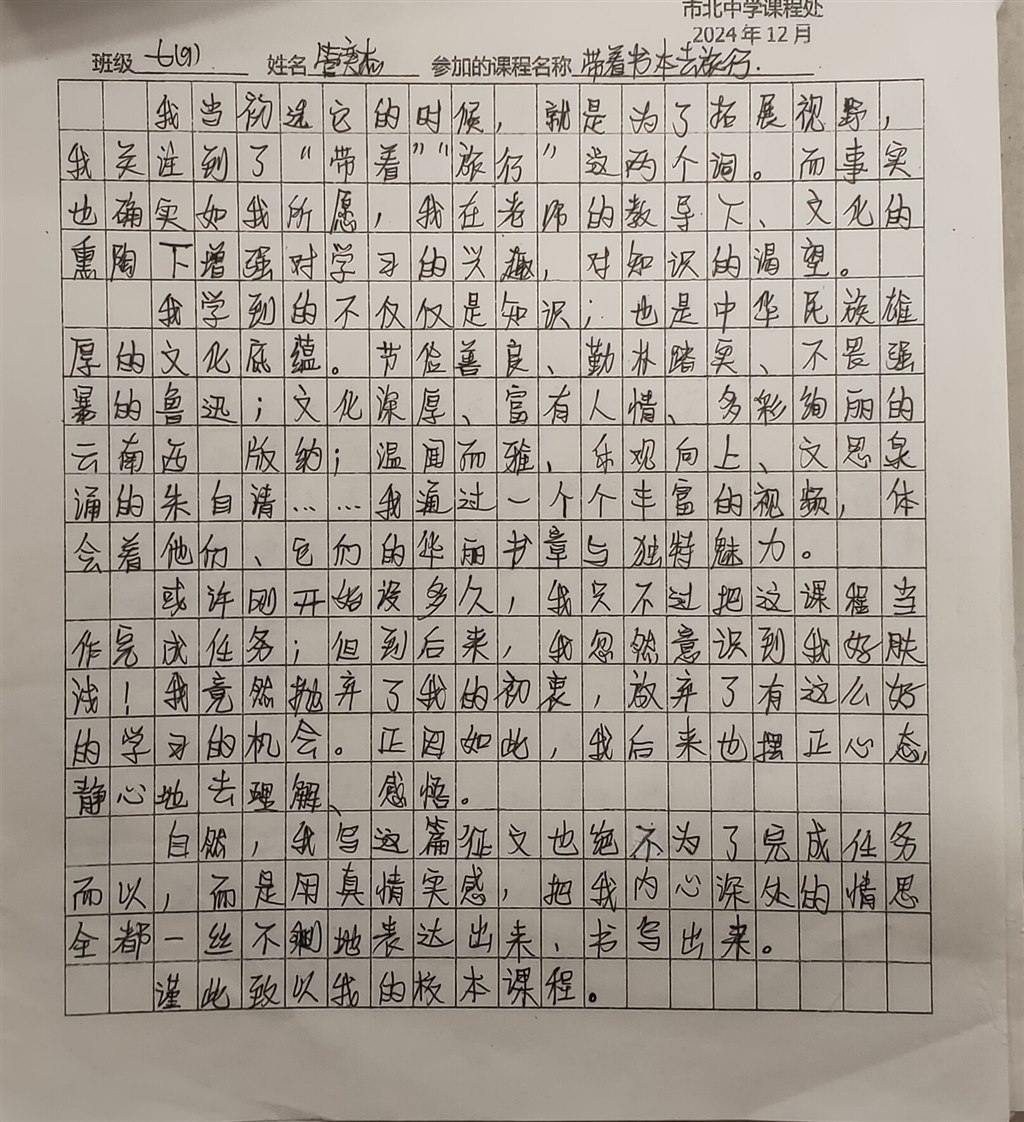 市北中学课程处
2024年12月
班级 七(9) 姓名 参加的课程名称 带着书本去旅行.
我当初选它的时候，就是为了拓展视野，
我关注到了“带着”“旅行”这两个词。而事实
也确实如我所愿，我在老师的教导下、文化的
熏陶下增强对学习的兴趣，对知识的渴望。
我学到的不仅仅是知识；也是中华民族雄
厚的文化底蕴。节俭善良、勤朴踏实、不畏强
暴的鲁迅；文化深厚、富有人情、多彩绚丽的
云南西 版纳；温闰而雅、乐观向上、文思泉
涌的朱自清……我通过一个个丰富的视频，体
会着他们、它们的华丽书章与独特魅力。
或许刚开始没多久，我只不过把这课程当
作完成任务；但到后来，我忽然意识到我好肤
浅！我竟然抛弃了我的初衷，放弃了有这么好
的学习的机会。正因如此，我后来也摆正心态，
静心地去理解、感悟。
自然，我写这篇征文也绝不为了完成任务
而以，而是用真情实感，把我内心深处的情思
全都一丝不剩地表达出来、书写出来。
谨此致以我的校本课程。